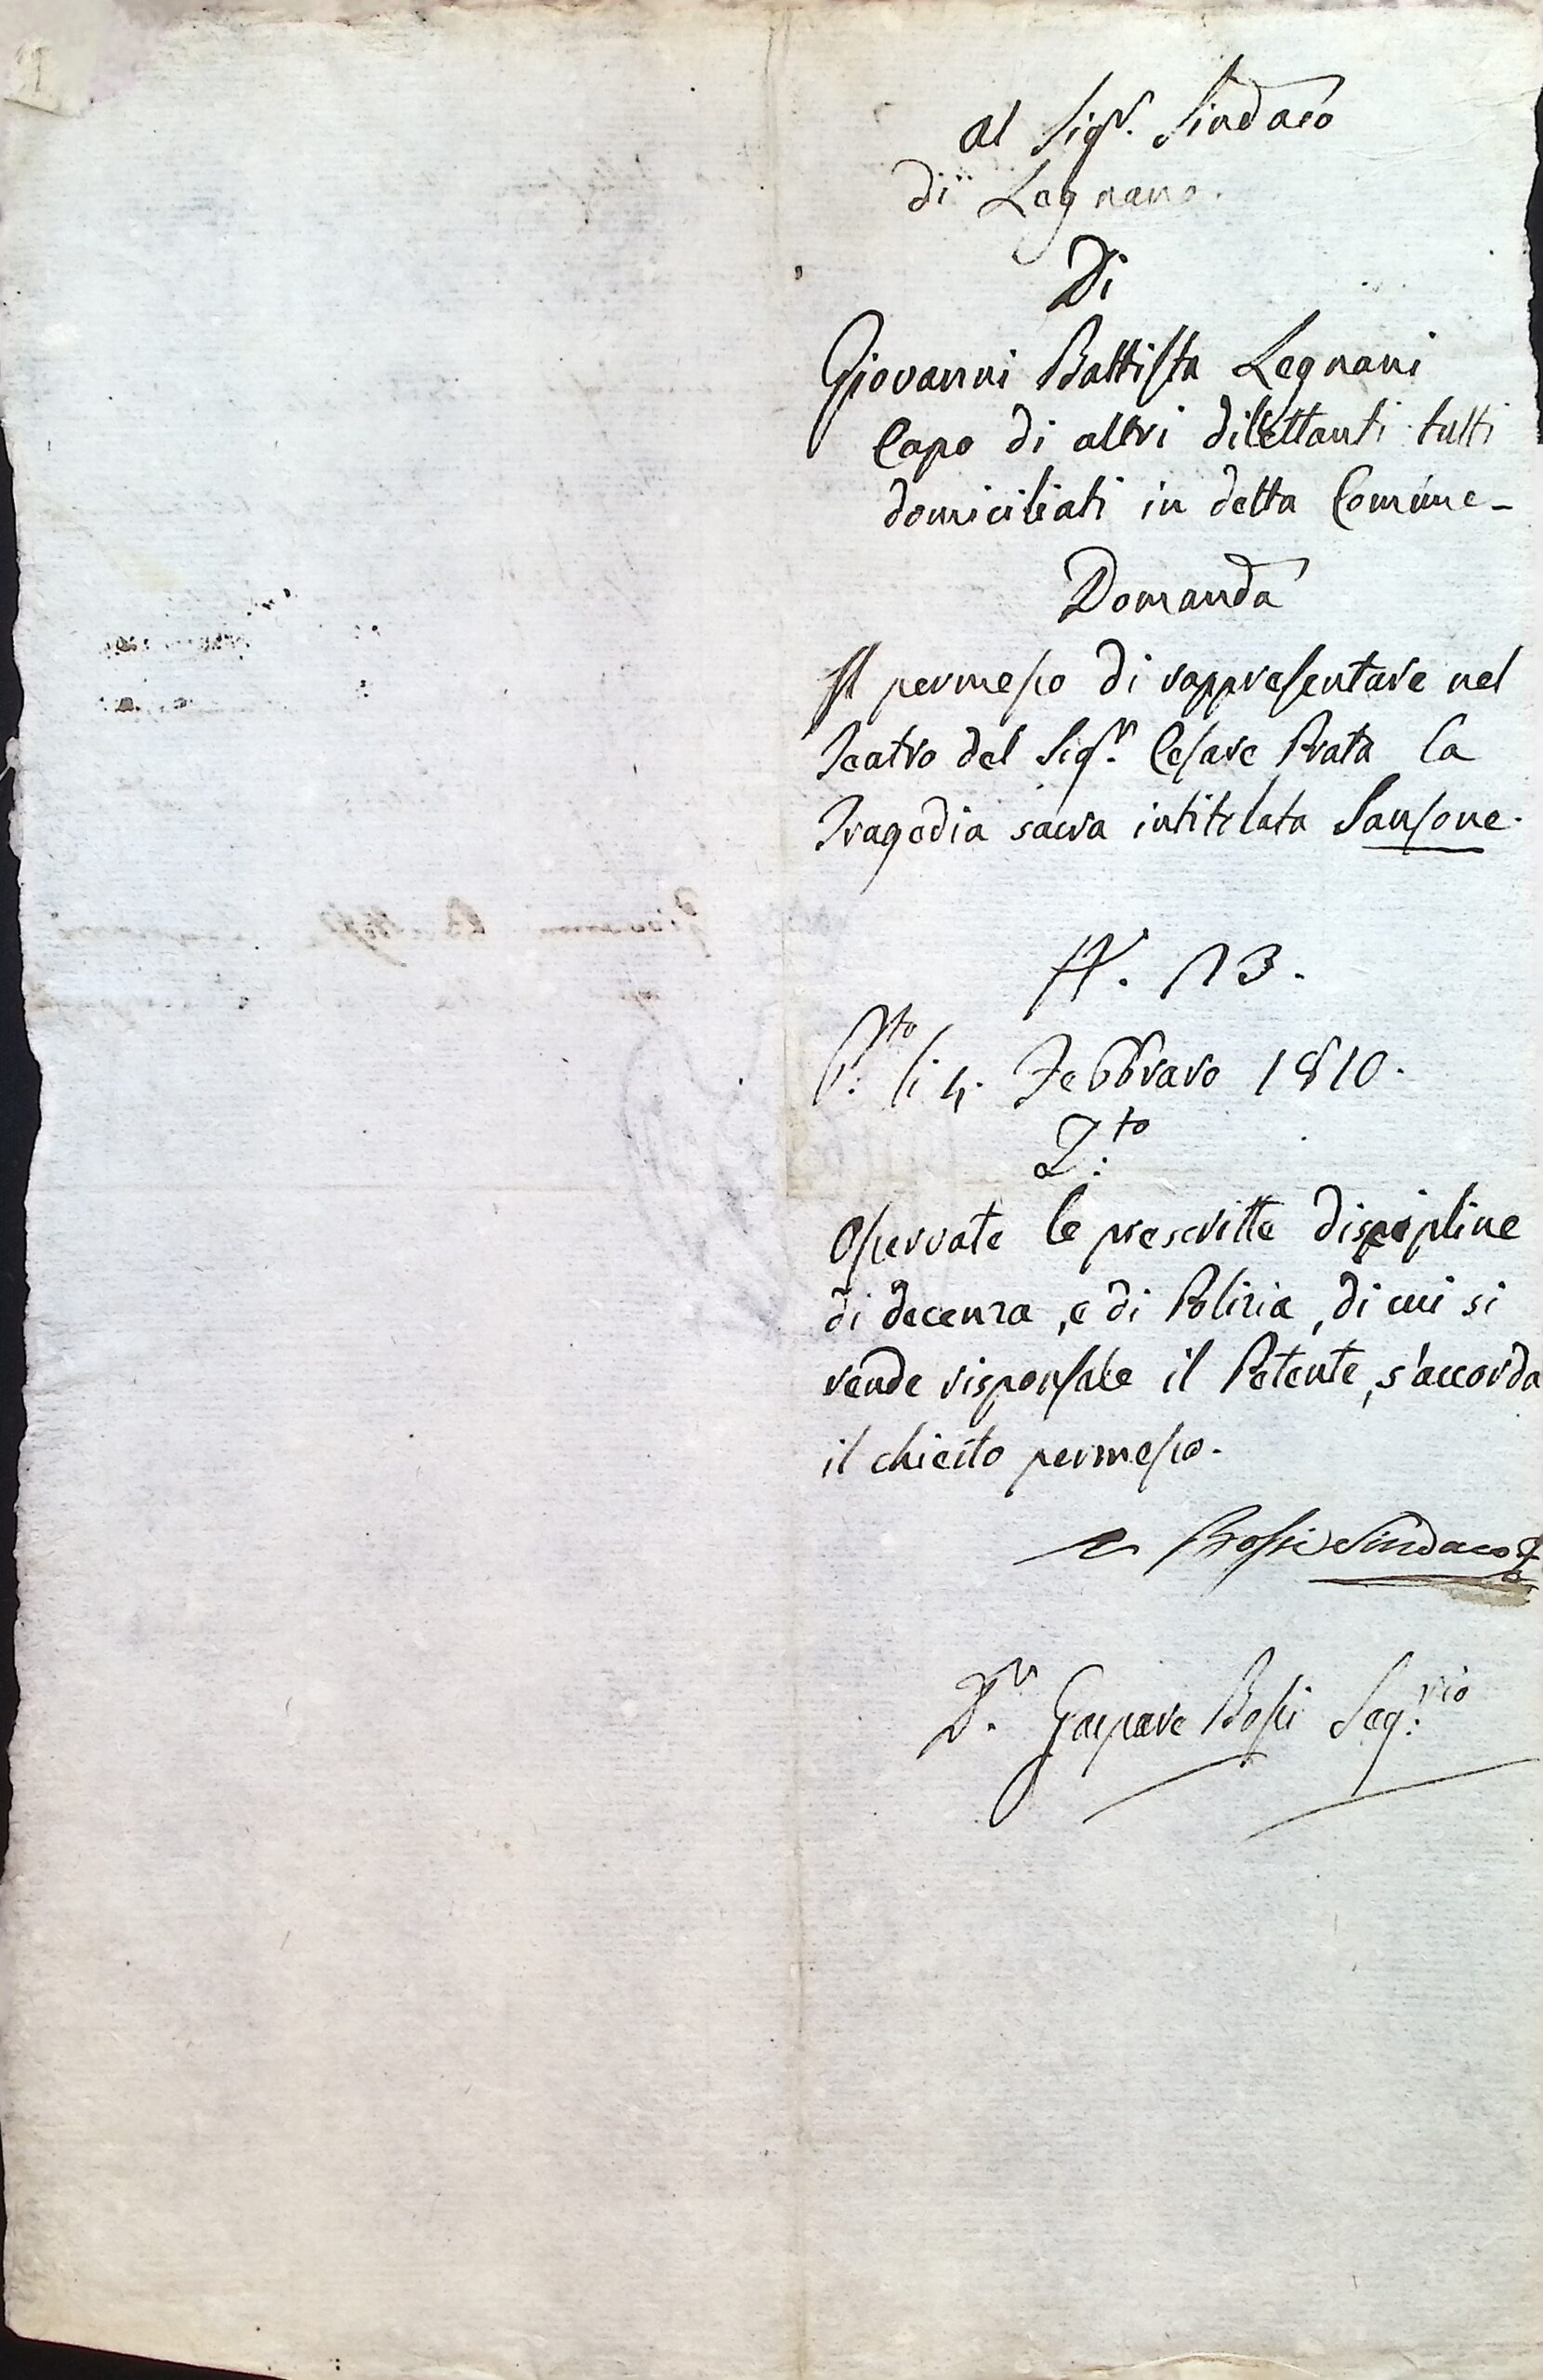 Al Sig.r Sindaco
di Legnano.
Di
Giovanni Battista Legnani
Capo di altri dilettanti tutti
domiciliati in detta Comune -
Domanda
Il permesso di rappresentare nel
Teatro del Sig.r Cesare Prata la
Tragedia sacra intitolata Sansone.
N. 13.
P.to li 4. Febbraro 1810.
Osservate le prescritte discipline
di decenza, e di Polizia, di cui si
rende risponsale il Petente, s'accorda
il chiesto permesso.
Bossi Sindaco
D.r Gaspare Bossi Seg.rio